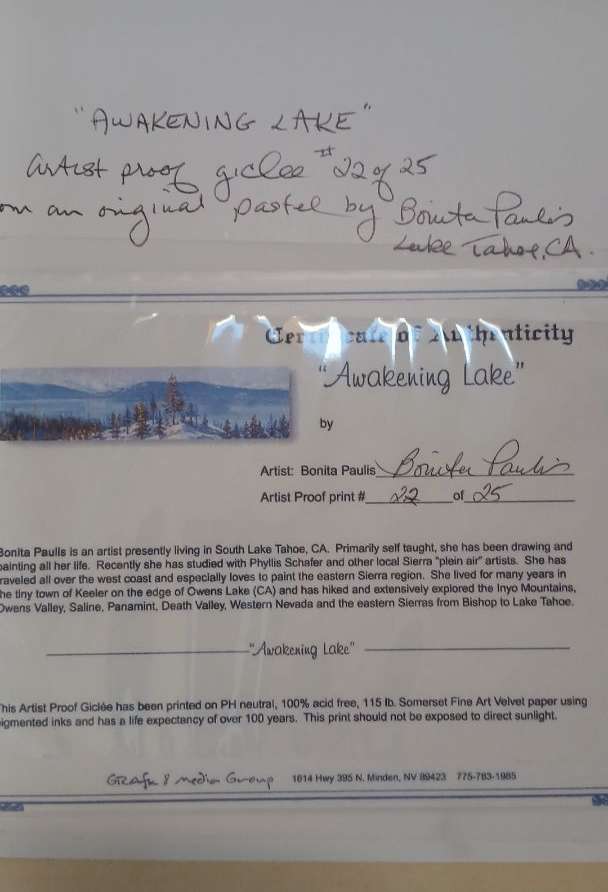 "AWAKENING LAKE"
artist proof giclee # 22 of 25
om an original pastel by Bonita Paulis
Lake Tahoe, CA.
Certificate of Authenticity
"Awakening Lake"
by
Artist: Bonita Paulis Bonita Paulis
Artist Proof print # 22 of 25
Bonita Paulis is an artist presently living in South Lake Tahoe, CA. Primarily self taught, she has been drawing and
painting all her life. Recently she has studied with Phyllis Schafer and other local Sierra "plein air" artists. She has
raveled all over the west coast and especially loves to paint the eastern Sierra region. She lived for many years in
he tiny town of Keeler on the edge of Owens Lake (CA) and has hiked and extensively explored the Inyo Mountains,
Owens Valley, Saline, Panamint, Death Valley, Western Nevada and the eastern Sierras from Bishop to Lake Tahoe.
"Awakening Lake"
his Artist Proof Giclée has been printed on PH neutral, 100% acid free, 115 lb. Somerset Fine Art Velvet paper using
igmented inks and has a life expectancy of over 100 years. This print should not be exposed to direct sunlight.
Grafix 8 Media Group 1614 Hwy 395 N. Minden, NV 89423 775-783-1985